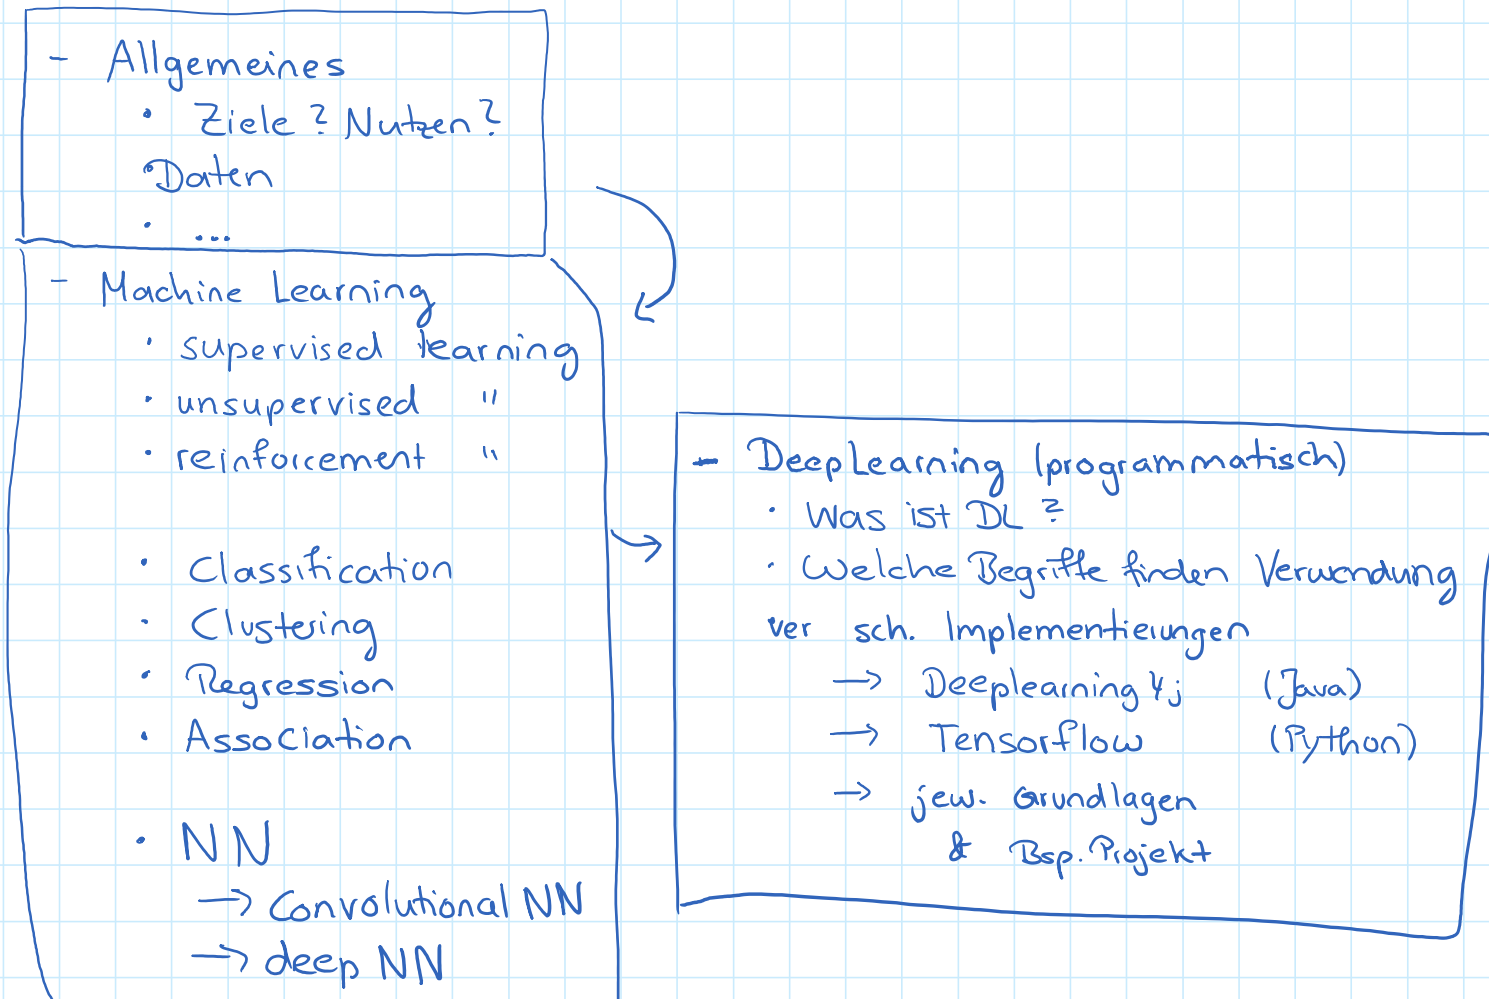 - Allgemeines
• Ziele? Nutzen?
• Daten
• ...
- Machine Learning
• supervised learning
• unsupervised "
• reinforcement "
• Classification
• Clustering
• Regression
• Association
• NN
→ Convolutional NN
→ deep NN
- DeepLearning (programmatisch)
• Was ist DL?
• Welche Begriffe finden Verwendung
ver sch. Implementierungen
→ Deeplearning4j (Java)
→ Tensorflow (Python)
→ jew. Grundlagen
& Bsp. Projekt